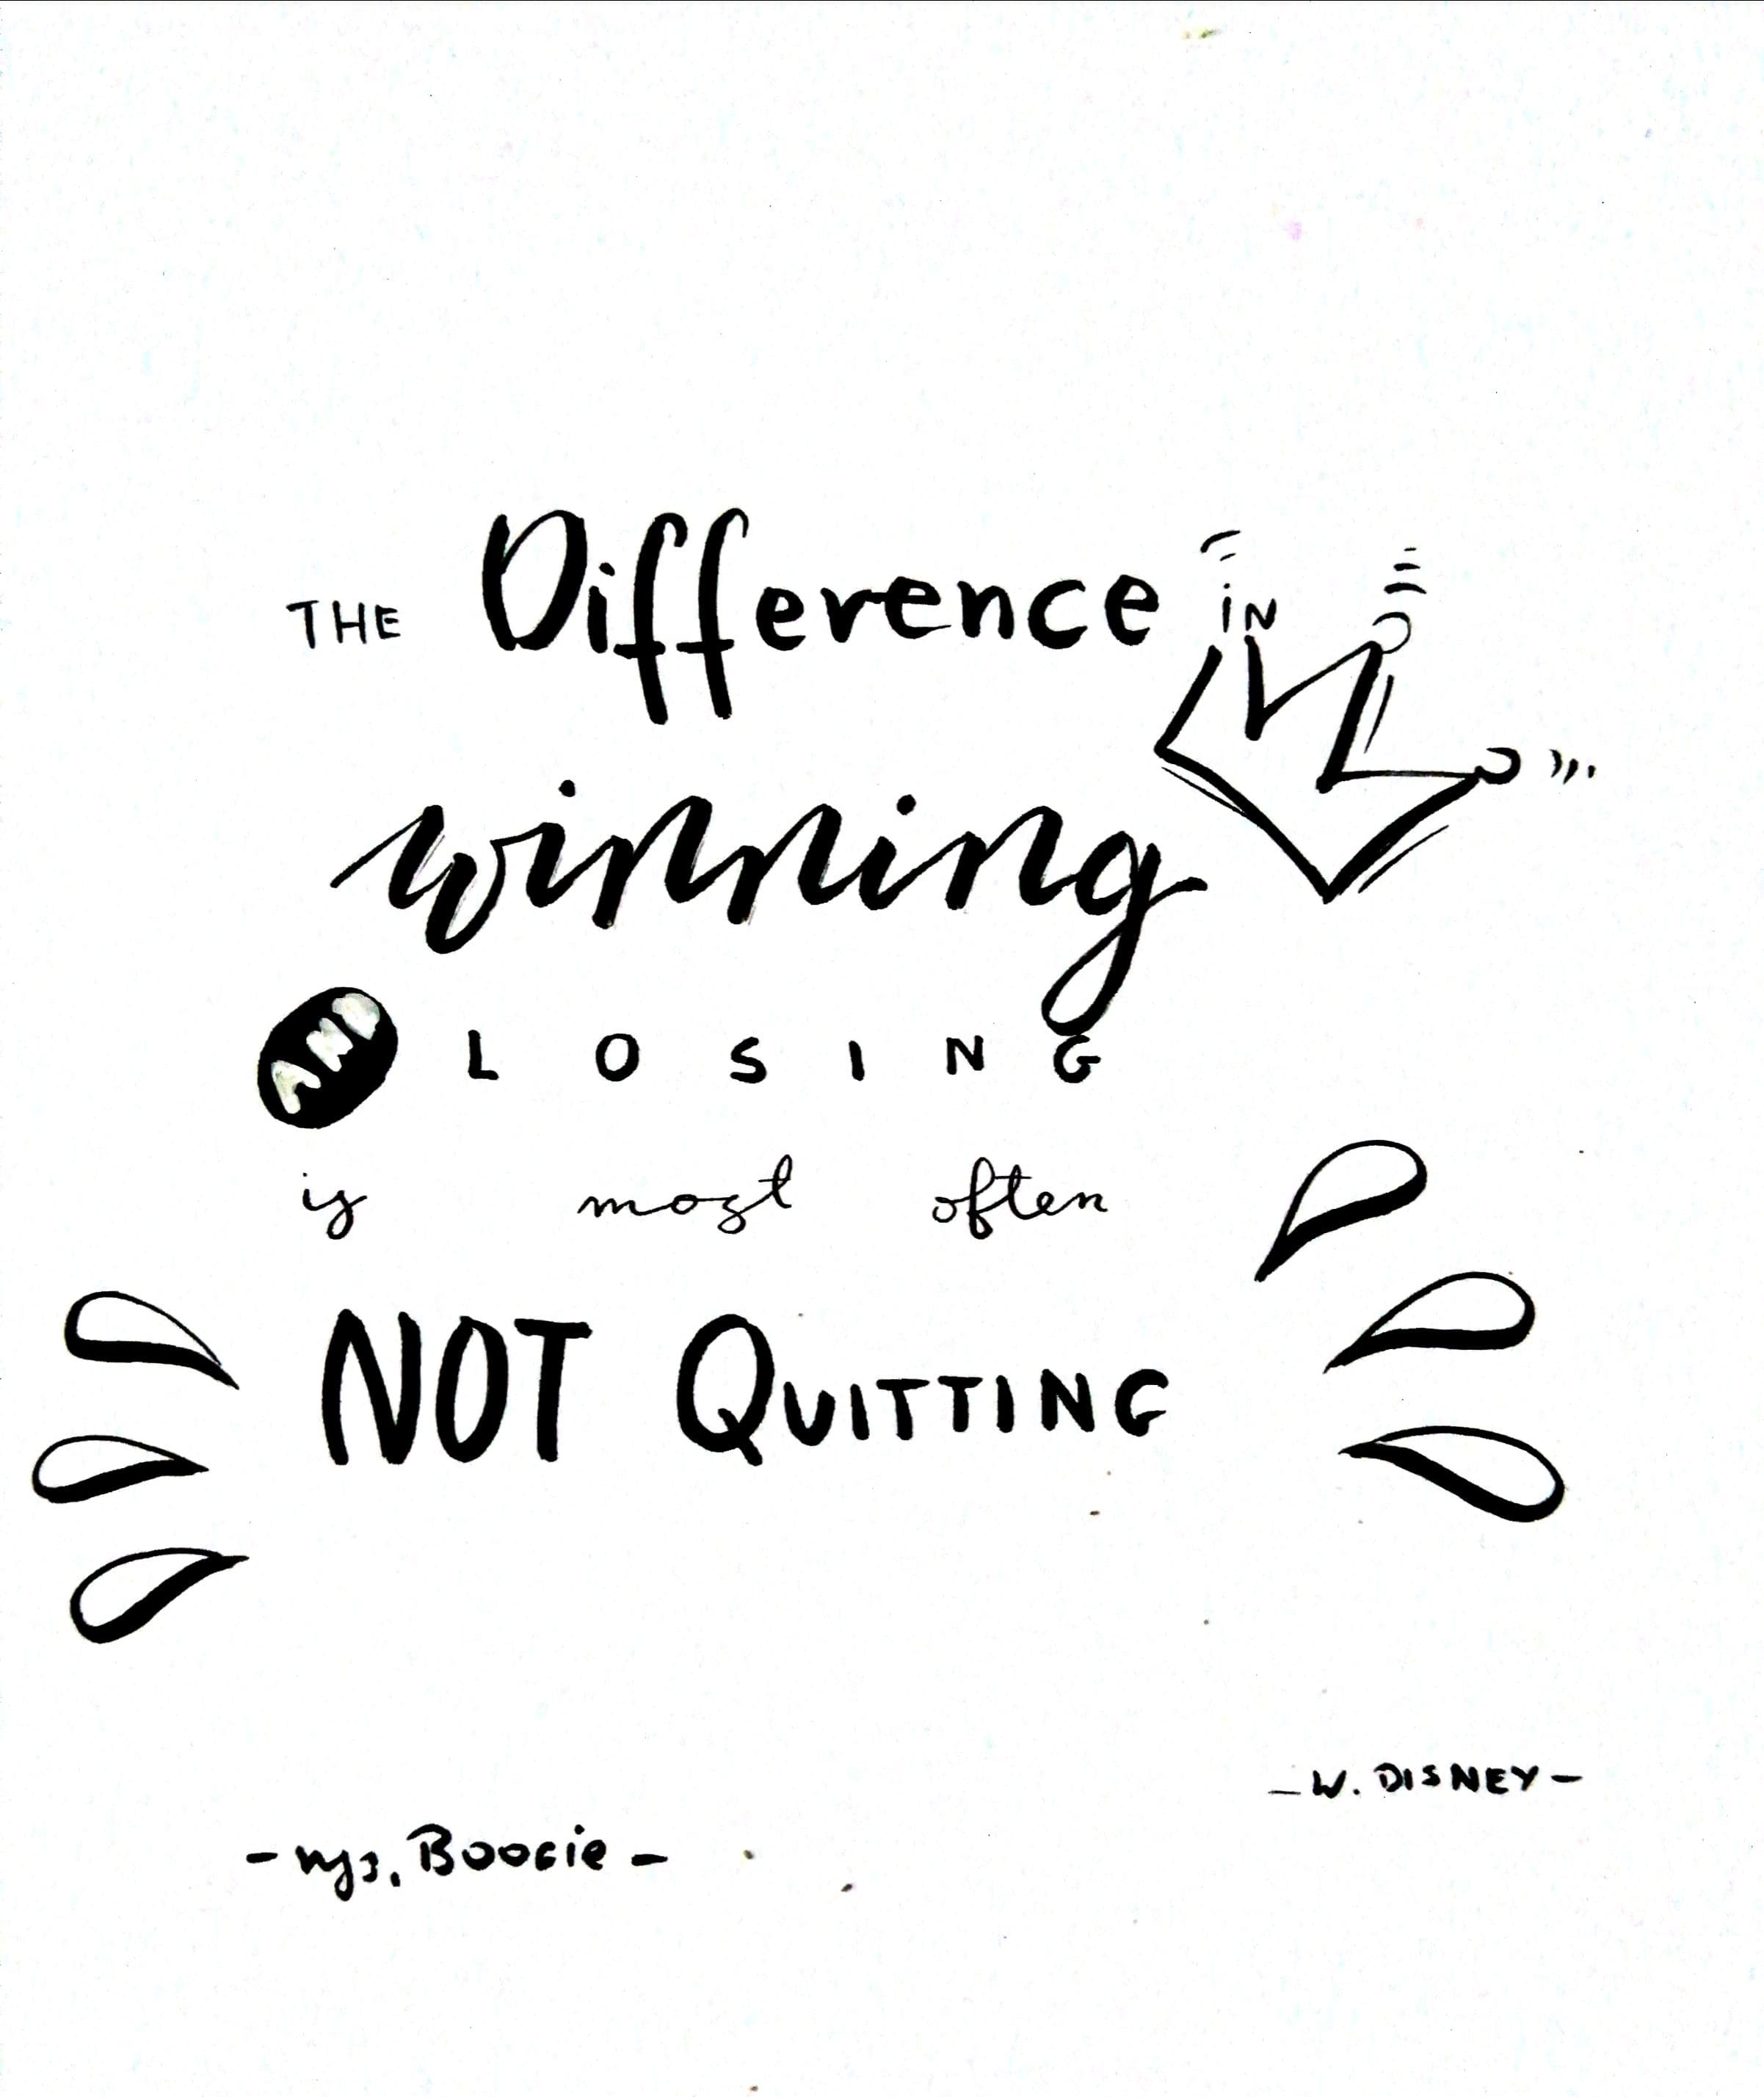 THE Difference iN
winning
AND LOSING
is most often
NOT QUITTING
- W. DISNEY -
- mjs. Boogie -